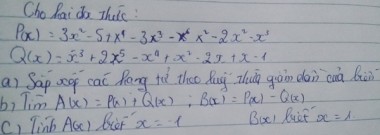 Cho hai đa thức :
P(x) = 3x² - 5 + x⁴ - 3x³ - x⁶ x² - 2x² - x³
Q(x) = x³ + 2x⁵ - x⁴ + x² - 2x + x - 1
a) Sắp xếp các hạng tử theo luỹ thừa giảm dần của biến
b) Tìm A(x) = P(x) + Q(x) ; B(x) = P(x) - Q(x)
c) Tính A(x) biết x = -1 B(x) biết x = 1